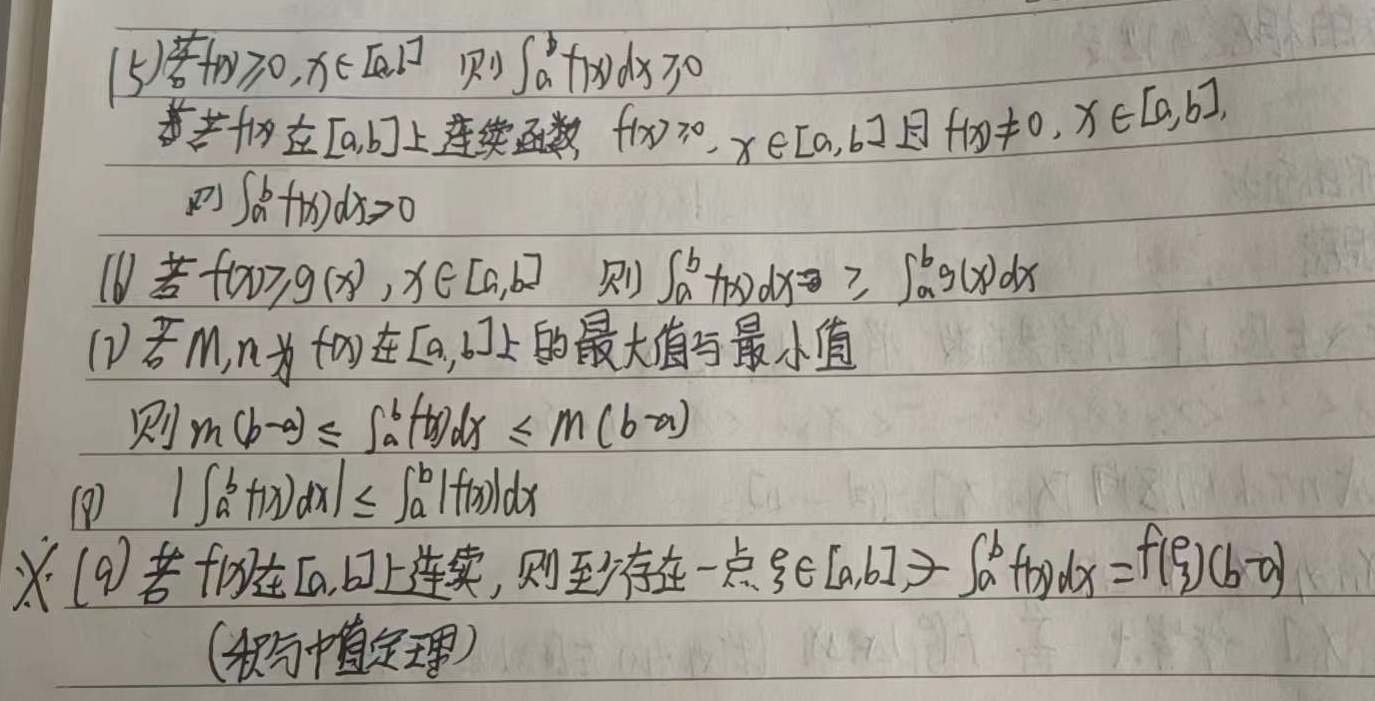 (5) 若f(x)≥0, x∈[a,b] 则 ∫ₐᵇ f(x)dx≥0
若f(x)在[a,b]上连续函数 f(x)≥0, x∈[a,b]且f(x)≠0, x∈[a,b],
则∫ₐᵇ f(x)dx>0
(6) 若f(x)≥g(x), x∈[a,b] 则 ∫ₐᵇ f(x)dx ≥ ∫ₐᵇ g(x)dx
(7) 若M,n为f(x)在[a,b]上的最大值与最小值
则m(b-a) ≤ ∫ₐᵇ f(x)dx ≤ M(b-a)
(8) |∫ₐᵇ f(x)dx| ≤ ∫ₐᵇ |f(x)|dx
※ (9) 若f(x)在[a,b]上连续, 则至少存在一点ξ∈[a,b], ∋ ∫ₐᵇ f(x)dx = f(ξ)(b-a)
(积分中值定理)